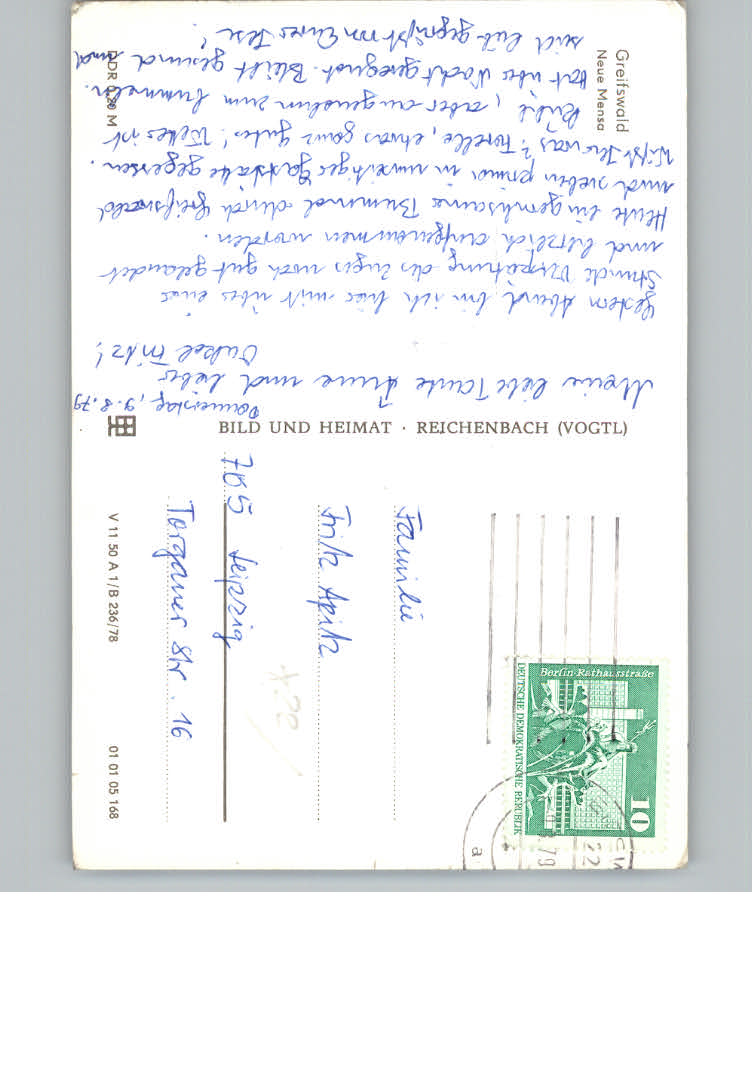 Greifswald
Neue Mensa
Donnerstag, 9.8.79
Meine liebe Tante Änne und lieber
Onkel Fritz!
Gestern Abend bin ich hier mit über einer
Stunde Verspätung des Zuges noch gut gelandet
und herzlich aufgenommen worden.
Heute ein gemeinsamer Bummel durch Greifswald
und soeben prima in urzeitiger Gaststätte gegessen.
Wißt Ihr was? Forelle, etwas ganz gutes! Wetter ist
kühl, aber angenehm zum bummeln.
Hat über Nacht geregnet. Bleibt gesund und
seid lieb gegrüßt von Eurer Ilse!
DDR 0,20 M
BILD UND HEIMAT · REICHENBACH (VOGTL)
V 11 50 A 1/B 236/78
01 01 05 168
Familie
Fritz Apitz
705 Leipzig
Torgauer Str. 16
Berlin·Rathausstraße
DEUTSCHE DEMOKRATISCHE REPUBLIK
10
22
79
a